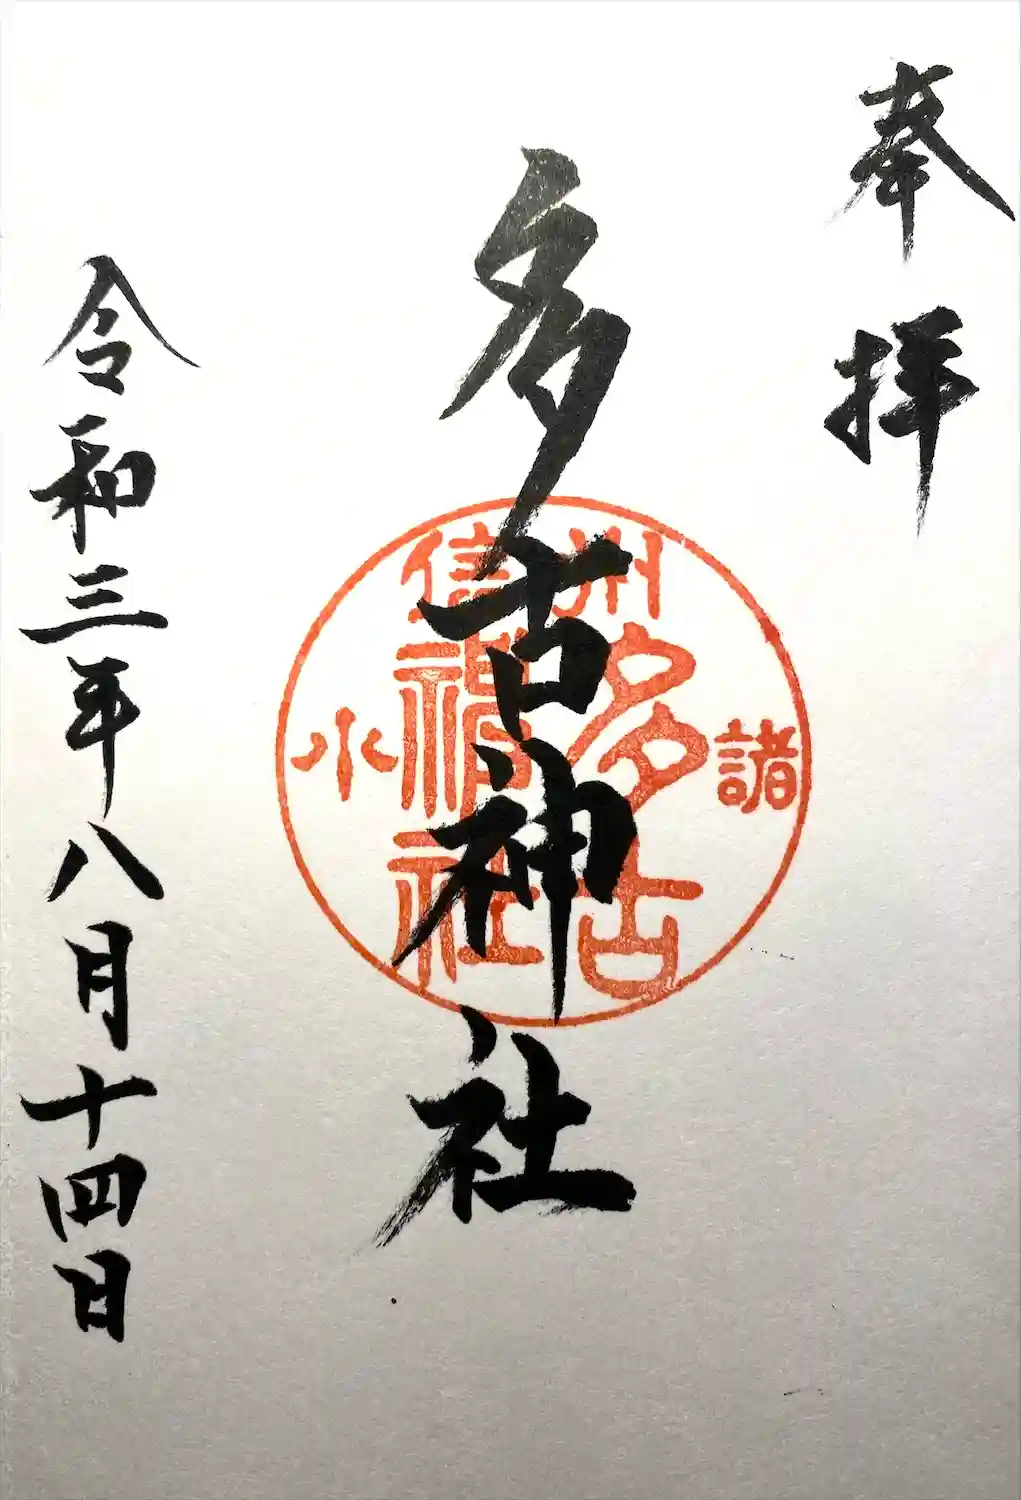 奉拝
多古神社
信州
小諸
多古
神社
令和三年八月十四日